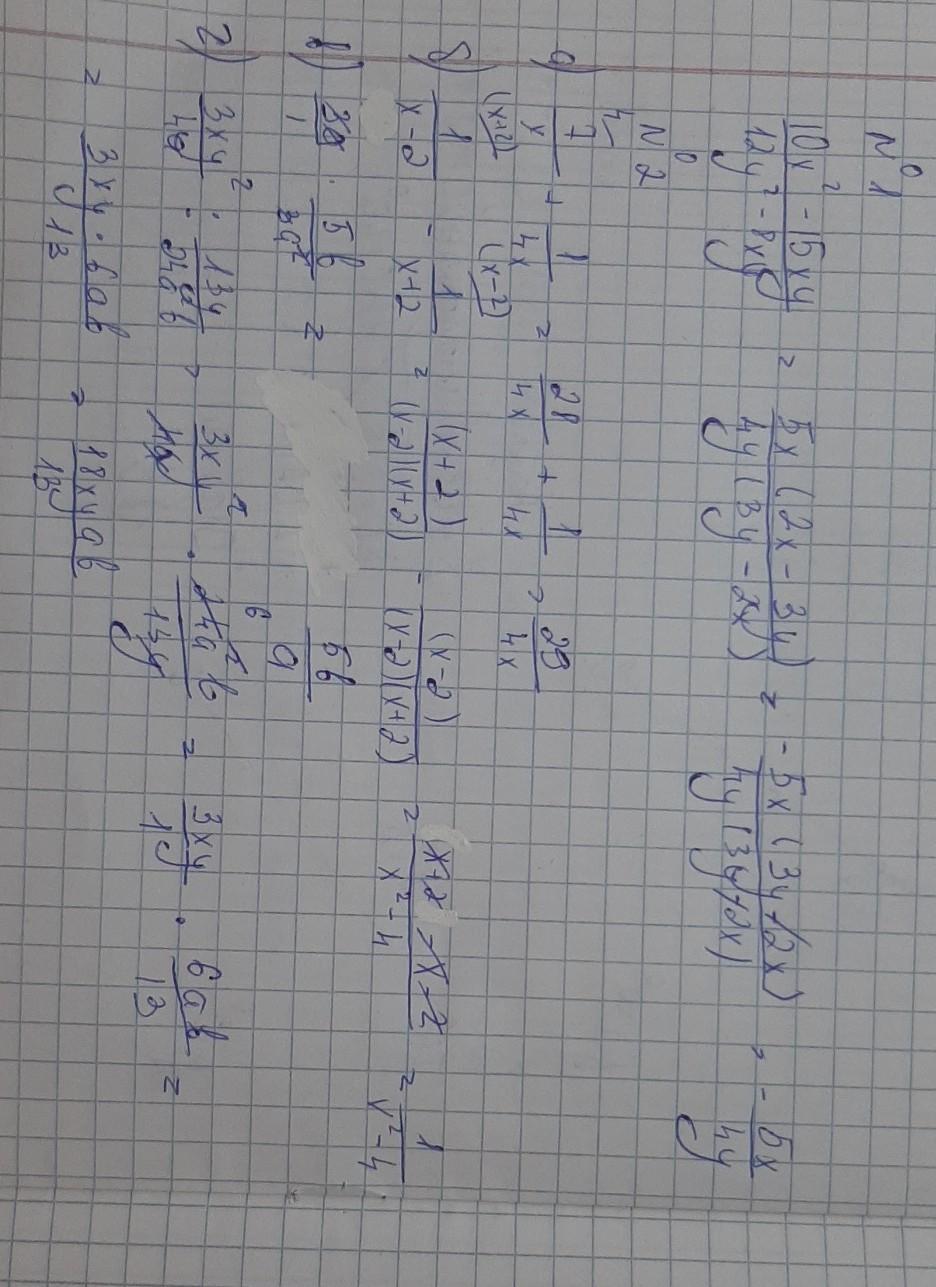 №1
(10x² - 15xy)/(12y² - 8xy) = 5x(2x - 3y)/4y(3y - 2x) = -5x(3y - 2x)/4y(3y - 2x) = -5x/4y
№2
а) 7/x + 1/4x = 28/4x + 1/4x = 29/4x
б) 1/(x-2) - 1/(x+2) = (x+2)/(x-2)(x+2) - (x-2)/(x-2)(x+2) = (x+2-x-2)/(x²-4) = 1/(x²-4)
в) 3a/1 · 5b/3a² = 5b/a
г) 3xy²/4a : 13y/24a²b = 3xy²/4a · 24a²b/13y = 3xy/1 · 6ab/13 =
= 3xy · 6ab/13 = 18xyab/13